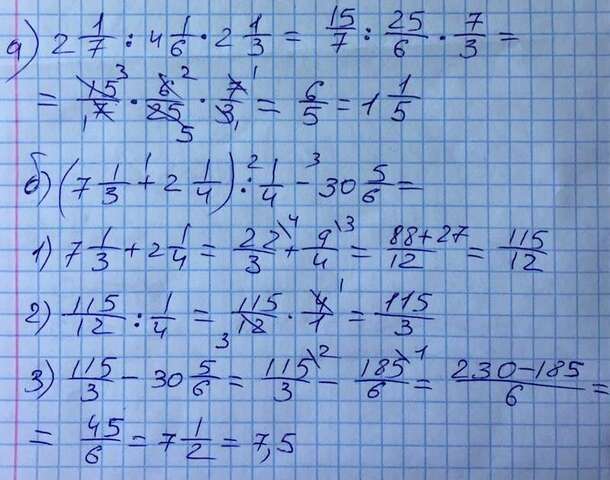 а) 2 1/7 : 4 1/6 · 2 1/3 = 15/7 : 25/6 · 7/3 =
= 15/7 · 6/25 · 7/3 = 6/5 = 1 1/5
б) (7 1/3 + 2 1/4) : 1/4 - 30 5/6 =
1) 7 1/3 + 2 1/4 = 22/3 + 9/4 = 88+27/12 = 115/12
2) 115/12 : 1/4 = 115/12 · 4/1 = 115/3
3) 115/3 - 30 5/6 = 115/3 - 185/6 = 230-185/6 =
= 45/6 = 7 1/2 = 7,5